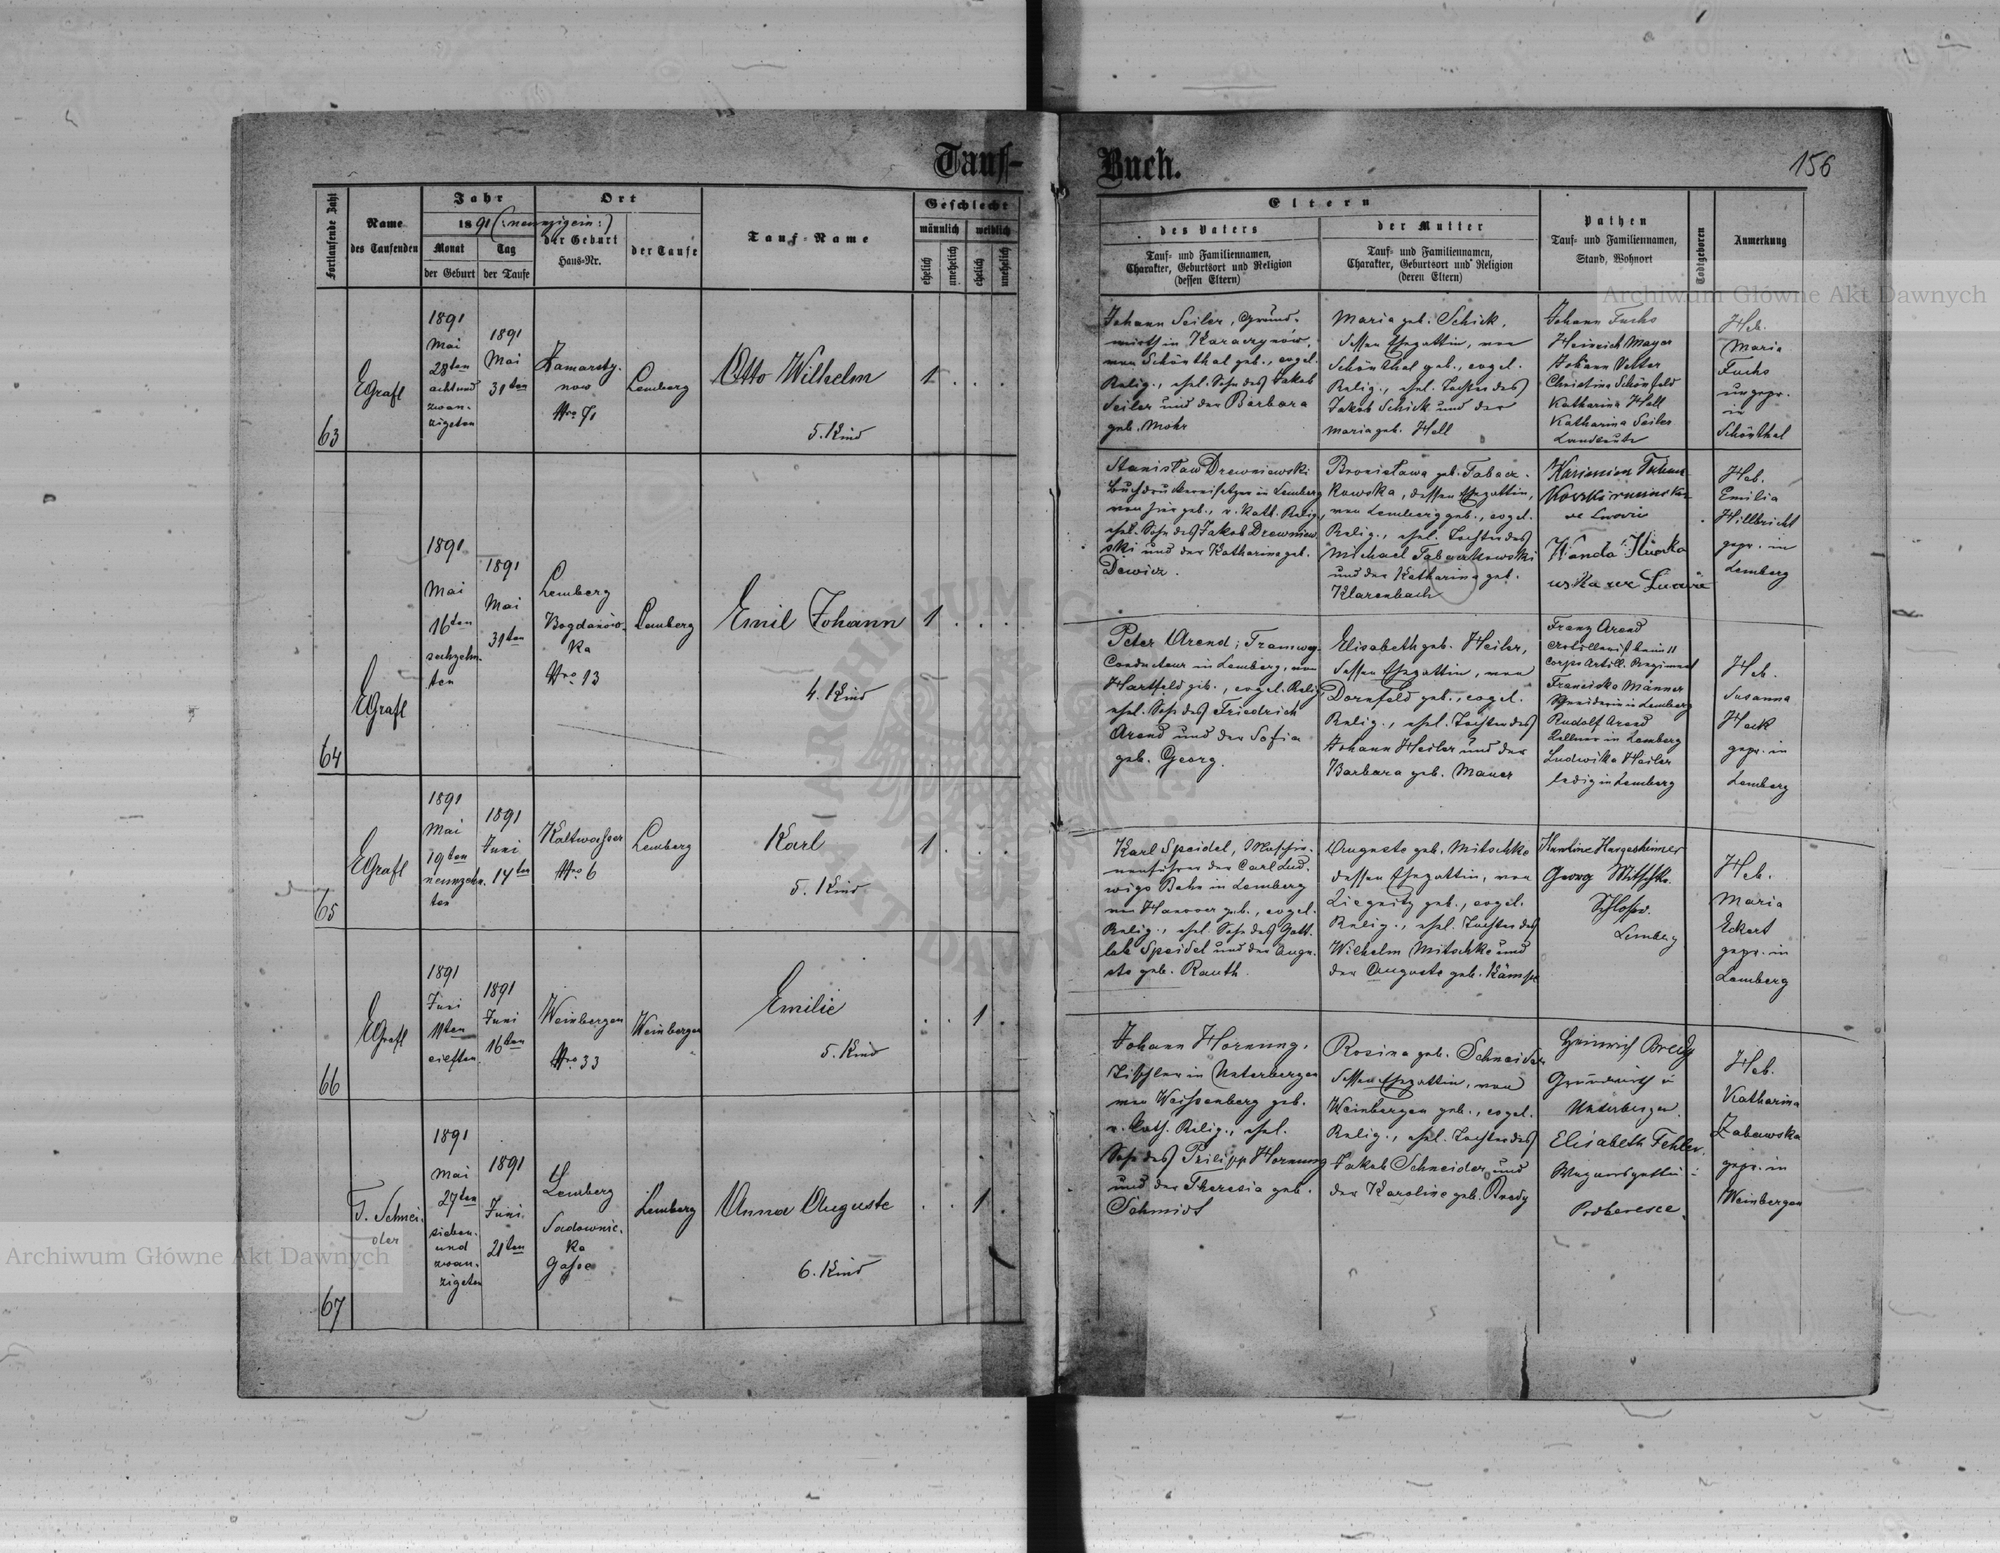 Tauf-
Fortlaufende Zahl
Name
des Taufenden
Jahr
1891 (:neunzigein:)
Monat
der Geburt
Tag
der Taufe
Ort
der Geburt
Haus-Nr.
der Taufe
Tauf-Name
Geschlecht
männlich
weiblich
ehelich
unehelich
ehelich
unehelich
63
EGrafl
1891
Mai
28ten
achtund
zwan-
zigsten
1891
Mai
31ten
Kamarsty-
now
Nro 71
Lemberg
Otto Wilhelm
5. Kind
1
64
EGrafl
1891
Mai
16ten
sechzehn-
ten
1891
Mai
31ten
Lemberg
Bogdanow-
ka
Nro 13
Lemberg
Emil Johann
4. Kind
1
65
EGrafl
1891
Mai
19ten
neunzehn-
ten
1891
Juni
14ten
Kaltwasser
Nro 6
Lemberg
Karl
5. Kind
1
66
EGrafl
1891
Juni
11ten
eilften
1891
Juni
16ten
Weinbergen
Nro 33
Weinbergen
Emilie
5. Kind
1
67
T. Schnei-
der
1891
Mai
27ten
sieben-
und
zwan-
zigsten
1891
Juni
21ten
Lemberg
Sadownic-
ka
Gasse
Lemberg
Anna Auguste
6. Kind
1
Buch.
156
Eltern
des Vaters
Tauf- und Familiennamen,
Charakter, Geburtsort und Religion
(dessen Eltern)
der Mutter
Tauf- und Familiennamen,
Charakter, Geburtsort und Religion
(deren Eltern)
Pathen
Tauf- und Familiennamen,
Stand, Wohnort
Todtgeboren
Anmerkung
Johann Seiler, Grund-
wirth in
von Schönthal geb., evgel.
Relig., ehel. Sohn des Jakob
Seiler und der Barbara
geb. Mohr
Maria geb. Schick,
dessen Ehegattin, von
Schönthal geb., evgel.
Relig., ehel. Tochter des
Jakob Schick und der
Maria geb. Hell
Johann Fuchs
Heinrich Mayer
Johann Vetter
Christine Schönfeld
Katharina Hell
Katharina Seiler
Landleute
Heb.
Maria
Fuchs
ungepr.
in
Schönthal
Stanisław Drewniewski
Buchdruckereisetzer in Lemberg
von hier geb., r. kath. Relig.,
ehel. Sohn des Jakob Drewniew-
ski und der Katharina geb.
Dewicz.
Bronisława geb. Tabacz-
kowska, dessen Ehegattin,
von Lemberg geb., evgel.
Relig., ehel. Tochter des
Michael Tabaczkowski
und der Katharina geb.
Klarenbach
we Lwowie
Wanda
we Lwowie
Heb.
Emilia
Hillbricht
gepr. in
Lemberg
Peter Arend, Tramway-
Conducteur in Lemberg, von
Hartfeld geb., evgel. Relig.
ehel. Sohn des Friedrich
Arend und der Sofia
geb. Georg.
Elisabeth geb. Heiler,
dessen Ehegattin, von
Dornfeld geb., evgel.
Relig., ehel. Tochter des
Johann Heiler und der
Barbara geb. Mauer
Franz Arend
Artillerist beim 11
Corps Artill. Regiment
Franciska Männer
Schneiderin in Lemberg
Rudolf Arend
Kellner in Lemberg
Ludwika Heiler
ledig in Lemberg
Heb.
Susanna
Heck
gepr. in
Lemberg
Karl Speidel, Maschi-
nenführer der Carl Lud-
wigs Bahn in Lemberg
von Hanover geb., evgel.
Relig., ehel. Sohn des Gott-
lob Speidel und der Augu-
ste geb. Rauth.
Auguste geb. Mitschke
dessen Ehegattin, von
Liegnitz geb., evgel.
Relig., ehel. Tochter des
Wilhelm Mitschke und
der Auguste geb. Kämpe
Hargesheimer
Georg Mitschke
Schlosser
Lemberg
Heb.
Maria
Eckert
gepr. in
Lemberg
Johann Hornung,
Tischler in Unterbergen
von Weissenberg geb.
r. kath. Relig., ehel.
Sohn des Philipp Hornung
und der Theresia geb.
Schmidt
Rosina geb. Schneider
dessen Ehegattin, von
Weinbergen geb., evgel.
Relig., ehel. Tochter des
Jakob Schneider und
der Karoline geb. Bredy
Heinrich Bredy
Grundwirth in
Unterbergen.
Elisabeth Fehler,
Podberesce.
Heb.
Katharina
Zabawska
gepr. in
Weinbergen
Archiwum Główne Akt Dawnych
Archiwum Główne Akt Dawnych